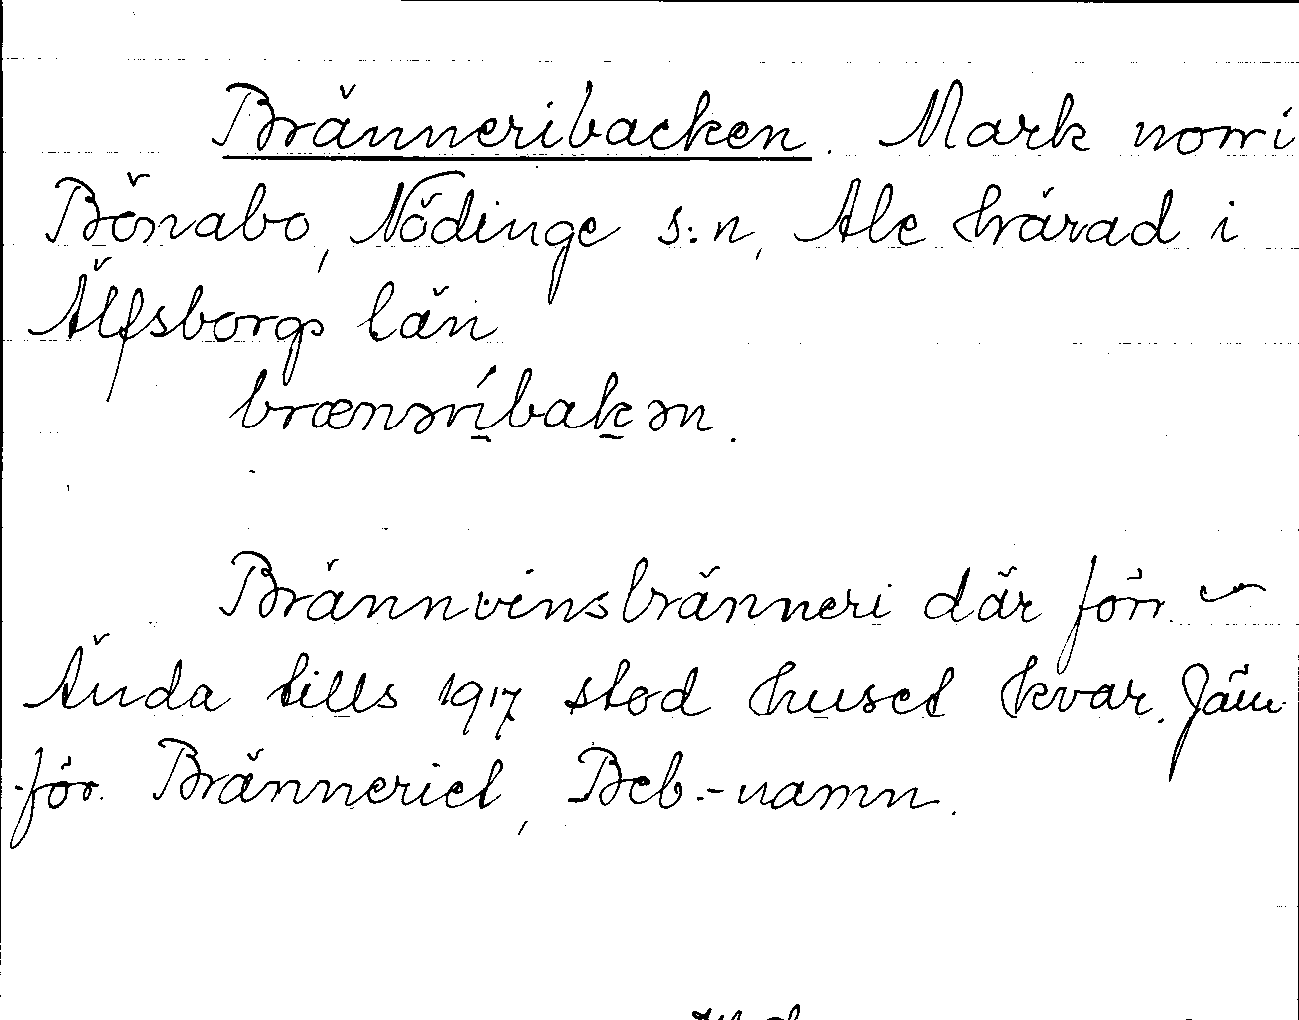 Bränneribacken. Mark norr i
Bönabo, Nödinge s:n, Ale härad i
Älfsborgs län
brænərı́bakən.
Brännvinsbränneri där förr. –
Ända tills 1917 stod huset kvar. Jäm
för. Bränneriet, Beb.-namn.